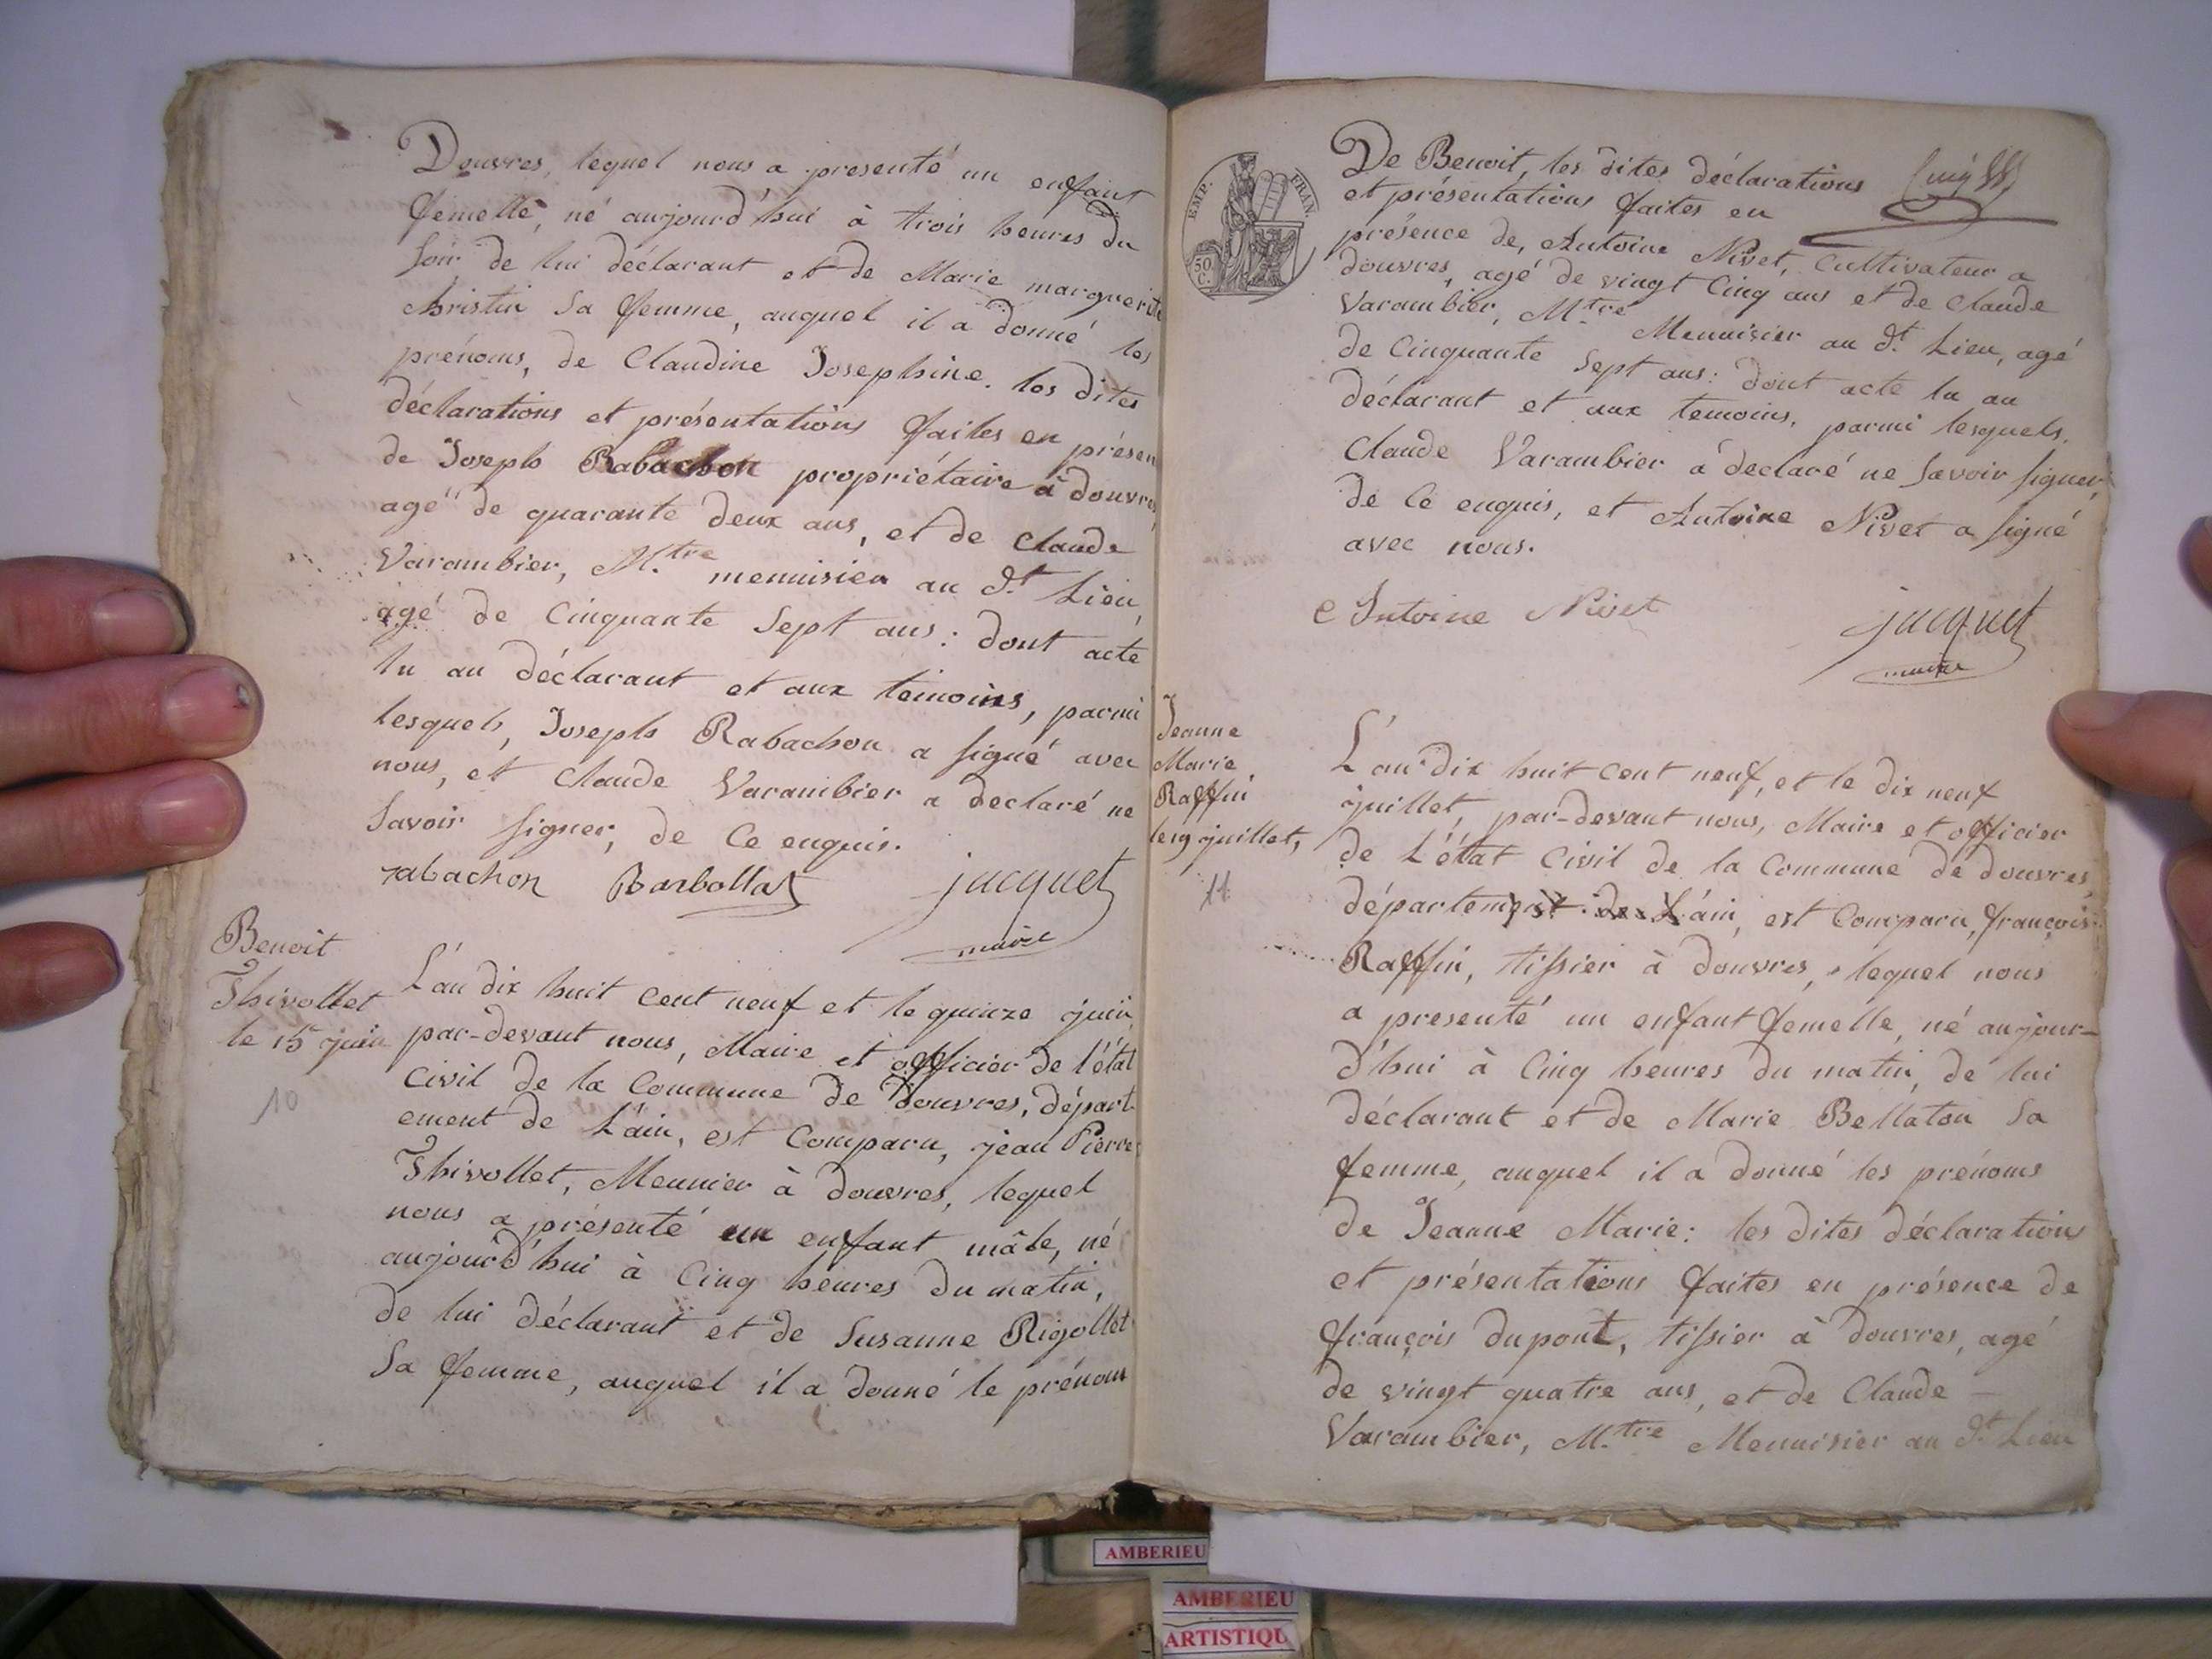 Douvres, lequel nous a presenté un enfant
femelle, né aujourd'hui à trois heures du
soir de lui déclarant et de Marie marguerite
christin sa femme, auquel il a donné les
prénoms, de Claudine Josephine. les dites
déclarations et présentations faites en présen
de Joseph Rabachon propriétaire à douvres,
agé de quarante deux ans, et de claude
Varambier, M.tre menuisier au dt. Lieu,
agé de Cinquante Sept ans: dont acte
lu au déclarant et aux temoins, parmi
lesquels, Joseph Rabachon a signé avec
nous, et claude Varambier a declaré ne
Savoir signer, de Ce enquis.
rabachon Barbollat jacquet
maire
Benoit
Thivollet
le 15 juin
10
L'an dix huit cent neuf et le quinze juin
par-devant nous, Maire et officier de l'état
Civil de la Commune de Douvres, départ
ement de L'ain, est Comparu, jean Pierre
Thivollet, Meunier à douvres, lequel
nous a présenté un enfant mâle, né
aujourd'hui à Cinq heures du matin,
de lui déclarant et de Susanne Rigollet
Sa femme, auquel il a donné le prénom
EMP. FRAN.
50
C.
De Benoit, les dites déclarations
et présentations faites en
présence de, Antoine Nivet, Cultivateur a
douvres, agé de vingt Cinq ans et de Claude
Varambier, M.tre Menuisier au dt. Lieu, agé
de Cinquante Sept ans: dont acte lu au
déclarant et aux temoins, parmi lesquels,
Claude Varambier a déclaré ne Savoir signer,
de Ce enquis, et Antoine Nivet a signé
avec nous.
Antoine Nivet jacquet
maire
Jeanne
Marie
Raffin
le 19 juillet,
11
L'an dix huit cent neuf, et le dix neuf
juillet, par-devant nous, Maire et officier
de L'état Civil de la Commune de douvres,
département de L'ain, est Comparu, françois
Raffin, tissier à douvres, lequel nous
a presenté un enfant femelle, né aujour-
d'hui à Cinq heures du matin, de lui
déclarant et de Marie Bellaton Sa
femme, auquel il a donné les prénoms
de Jeanne Marie: les dites déclarations
et présentations faites en présence de
françois dupont, tissier à douvres, agé
de vingt quatre ans, et de Claude
Varambier, M.tre Menuisier au dt. Lieu
AMBERIEU
AMBERIEU
ARTISTIQU